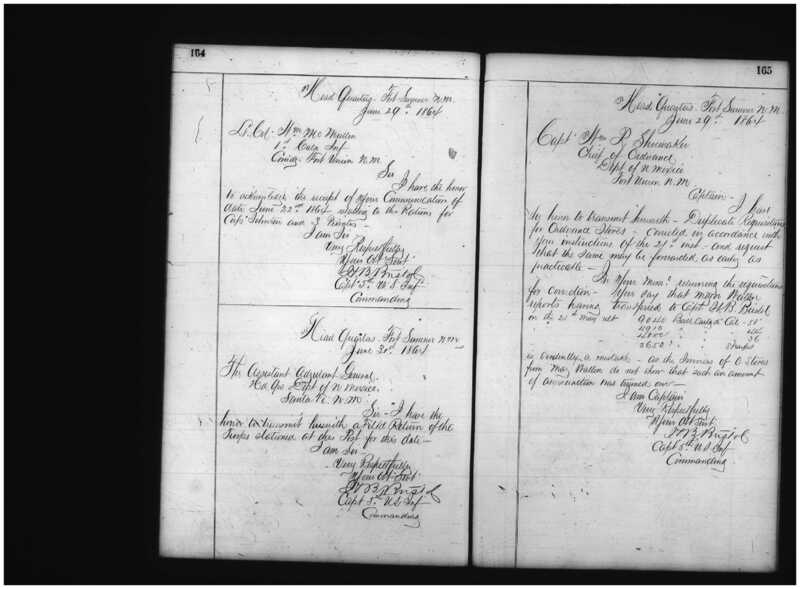 164
Head Quarters Fort Sumner N.M.
June 29th 1864
Lt. Col. Wm McMullen
1st Cala Inf
Comdg. Fort Union N.M.
Sir
I have the honor
to acknowledge the receipt of your Communication of
date June 22nd 1864 relating to the Rations for
Capt and
I am Sir
Very Respectfully
Your Obt Servt
H B Bristol
Capt 5th U.S. Inf
Commanding
Head Quarters Fort Sumner N.M.
June 30th 1864
The Assistant Adjutant General
Hd Qrs Dept of N Mexico
Santa Fe N.M.
Sir - I have the
honor to transmit herewith a Field Return of the
Troops stationed at this Post for this date -
I am Sir -
Very Respectfully
Your Obt Servt
H B Bristol
Capt 5th U.S. Inf
Commanding
165
Head Quarters Fort Sumner N.M.
June 29th 1864
Capt Wm R Shoemaker
Chief of Ordnance
Dept of N Mexico
Fort Union N.M.
Captain - I have
the honor to transmit herewith - Duplicate Requisitions
for Ordnance Stores - corrected in accordance with
your instructions of the inst - and request
that the same may be forwarded as early as
practicable -
In your returning the requisitions
for correction - you say that Major Wallen
reports having transferred to Capt H. B. Bristol
on the 21st May ult 9040 Ball Cartgs Cal - 58
"
"
3650 " Sharps
is evidently a mistake - as the Invoices of O Stores
from Maj Wallen do not show that such an amount
of ammunition was turned over -
I am Captain
Very Respectfully
Your Obt Servt
H B Bristol
Capt 5th U.S. Inf
Commanding